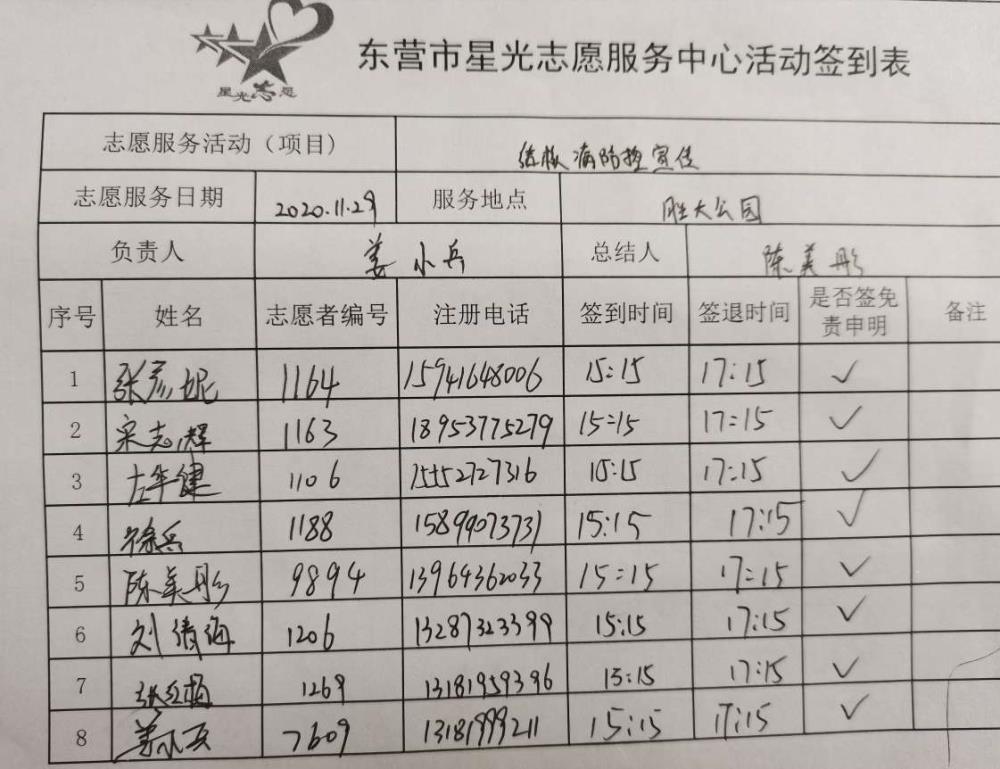 星光志愿
东营市星光志愿服务中心活动签到表
志愿服务活动（项目） 结核病防控宣传
志愿服务日期 2020.11.29 服务地点 胜大公园
负责人 姜小兵 总结人 陈美彤
序号 姓名 志愿者编号 注册电话 签到时间 签退时间 是否签免责申明 备注
1 张彦妮 1164 15941648006 15:15 17:15 ✓
2 宋志辉 1163 18953775279 15:15 17:15 ✓
3 左华健 1106 15552727316 15:15 17:15 ✓
4 徐兵 1188 15899073731 15:15 17:15 ✓
5 陈美彤 9894 13964362033 15:15 17:15 ✓
6 刘清海 1206 13287323399 15:15 17:15 ✓
7 张红梅 1269 13181959396 15:15 17:15 ✓
8 姜小兵 7609 13181999211 15:15 17:15 ✓